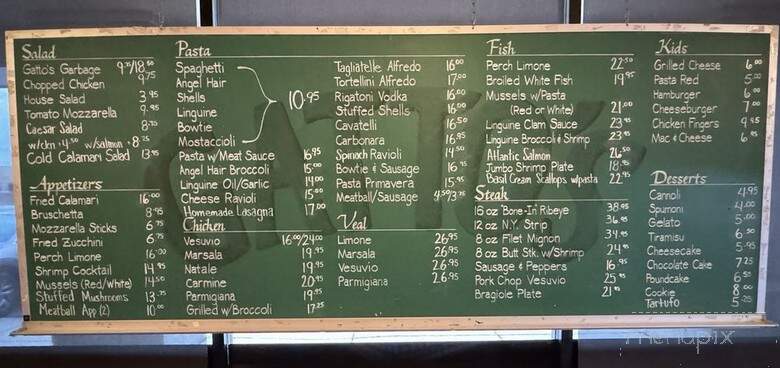 Salad
Gatto's Garbage 9.75/18.50
Chopped Chicken 9.75
House Salad 3.95
Tomato Mozzarella 9.95
Caesar Salad 8.75
w/ckn +4.50 w/salmon +8.75
Cold Calamari Salad 13.95
Appetizers
Fried Calamari 16.00
Bruschetta 8.95
Mozzarella Sticks 6.75
Fried Zucchini 6.75
Perch Limone 16.00
Shrimp Cocktail 14.95
Mussels (Red/White) 14.50
Stuffed Mushrooms 13.75
Meatball App (2) 10.00
Pasta
Spaghetti
Angel Hair
Shells
Linguine
Bowtie
Mostaccioli
10.95
Pasta w/Meat Sauce 16.95
Angel Hair Broccoli 15.00
Linguine Oil/Garlic 14.00
Cheese Ravioli 15.00
Homemade Lasagna 17.00
Tagliatelle Alfredo 16.00
Tortellini Alfredo 17.00
Rigatoni Vodka 16.00
Stuffed Shells 16.00
Cavatelli 16.50
Carbonara 16.95
Spinach Ravioli 14.50
Bowtie & Sausage 16.95
Pasta Primavera 15.95
Meatball/Sausage 4.50/3.75
Chicken
Vesuvio 16.00/24.00
Marsala 19.95
Natale 19.95
Carmine 20.95
Parmigiana 19.95
Grilled w/Broccoli 17.25
Veal
Limone 26.95
Marsala 26.95
Vesuvio 26.95
Parmigiana 26.95
Fish
Perch Limone 22.50
Broiled White Fish 19.95
Mussels w/Pasta
(Red or White) 21.00
Linguine Clam Sauce 23.95
Linguine Broccoli & Shrimp 23.95
Atlantic Salmon 26.50
Jumbo Shrimp Plate 18.95
Basil Cream Scallops w/pasta 22.95
Steak
16 oz Bone-In Ribeye 38.95
12 oz N.Y. Strip 36.95
8 oz Filet Mignon 34.95
8 oz Butt Stk w/Shrimp 24.95
Sausage & Peppers 16.95
Pork Chop Vesuvio 25.95
Bragiole Plate 21.95
Kids
Grilled Cheese 6.00
Pasta Red 5.00
Hamburger 6.00
Cheeseburger 7.00
Chicken Fingers 9.95
Mac & Cheese 6.95
Desserts
Cannoli 4.95
Spumoni 4.00
Gelato 5.00
Tiramisu 6.50
Cheesecake 5.95
Chocolate Cake 7.25
Poundcake 6.50
Cookie 8.00
Tartufo 5.25
menupix